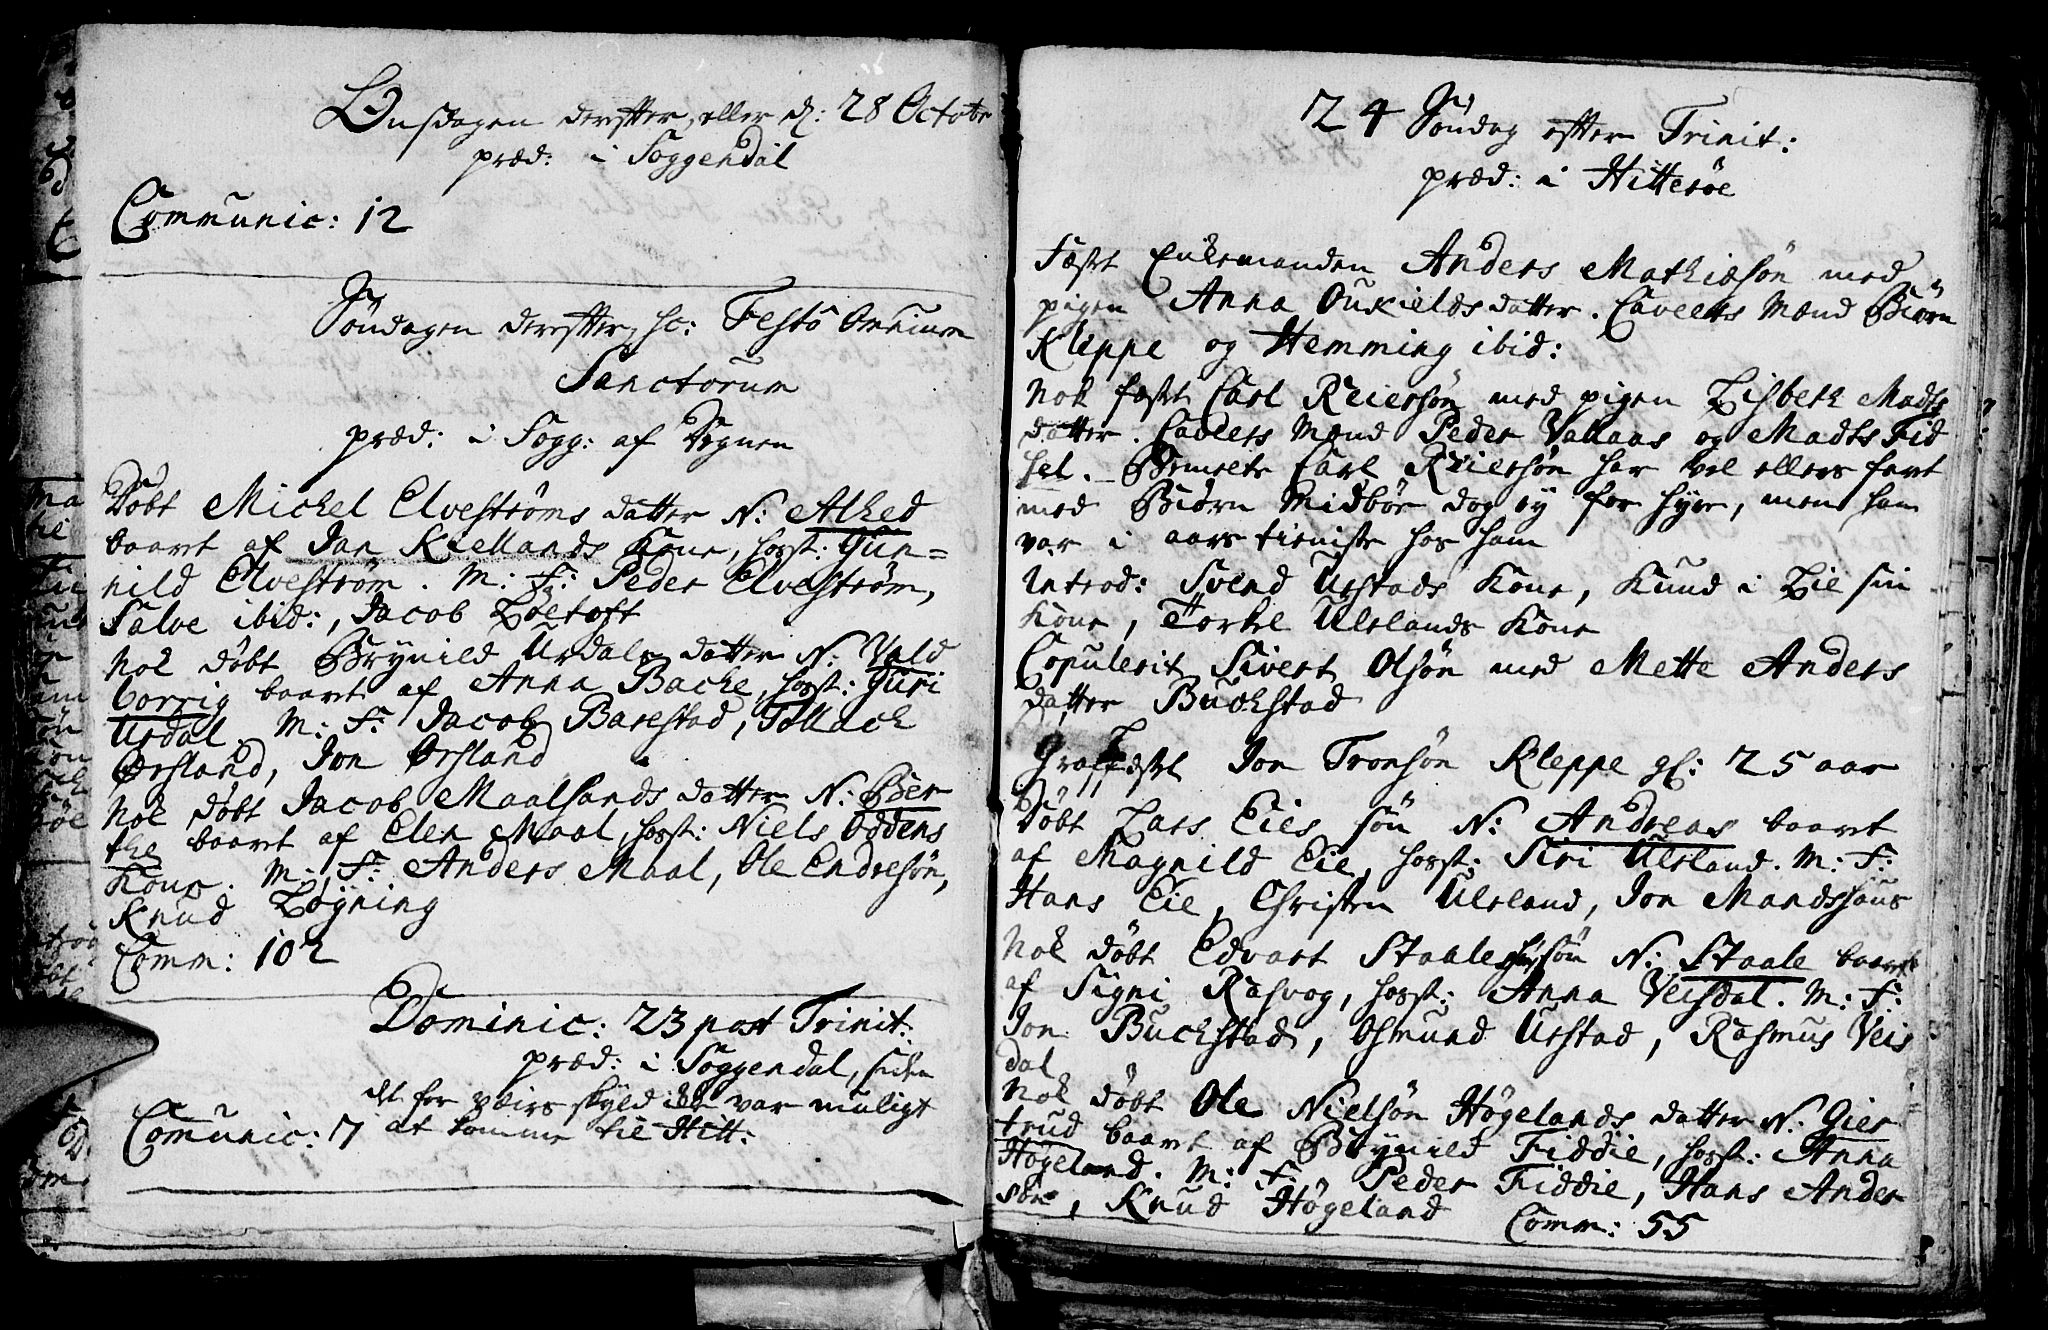 Onsdagen derefter, eller d: 28 Octobr
præd: i Soggendal
Communic: 12
Søndagen derefter, sc: Festô Omnium
Sanctorum
præd: i Sogg: af Degnen
Døbt Michel Elvestrøms datter N: Alhed
baaret af Jan Kiellands Kone, host: Gun=
nild Elvestrøm. M: F: Peder Elvestrøm,
Salve ibid:, Jacob Løetoft
Nok døbt Brynild Urdals datter N: Vald
borrig baaret af Anna Backe, host: Guri
Urdal. M: F: Jacob Barestad, Tollack
Ørsland, Jon Ørsland
Nok døbt Jacob Maalsands datter N: Ber
the baaret af Elen Maal, host: Niels Oddens
Kone. M: F: Anders Maal, Ole Endresøn,
Knud Løgning
Comm: 102
Dominic: 23 post Trinit:
præd: i Soggendal, siden
det for veirs skyld ikke var muligt
Com̄unic: 7 at komme til Hitt:
24 Søndag efter Trinit:
præd: i Hitterøe
Fæst Enkemanden Anders Mathiæsøn med
pigen Anna Oukieldsdatter. Caveets Mænd Biørn
Kleppe og Hemming ibid:
Nok fæst Carl Reiersøn med pigen Lisbeth Madts
datter. Caveets Mænd Peder Vallaas og Madts Fid
sel. Bemelte Carl Reiersøn har vel ellers faret
med Biørn Midbøe dog ey for hyre, men ham
var i aars tieniste hos ham
Introd: Svend Urstads Kone, Knud i Lie sin
Kone, Torkel Ulelands Kone
Copulerit Sivert Olsøn med Mette Anders
datter Buckstad
Graffæst Jon Tronsøn Kleppe gl: 25 aar
Døbt Lars Eies søn N: Andreas baaret
af Magnild Eie, host: Siri Uleland. M: F:
Hans Eie, Christen Uleland, Jon Mandshaus
Nok døbt Edvart Staalesøns søn N: Staale baaret
af Signi Rasvog, host: Anna Veisdal. M: F:
Jon Buckstad, Osmund Urstad, Rasmus Veis
dal
Nok døbt Ole Nielsøn Høgelands datter N: Gier
trud baaret af Brynild Fiddie, host: Anna
Høgeland. M: F: Peder Fiddie, Hans Ander
søn, Knud Høgeland Comm: 55